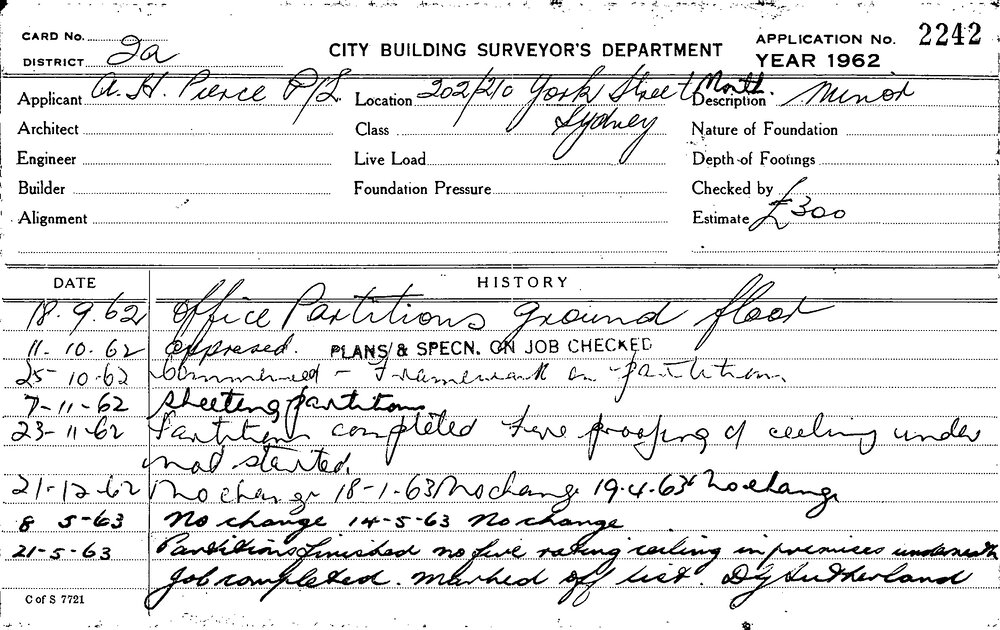 CARD No.
DISTRICT 2a
CITY BUILDING SURVEYOR'S DEPARTMENT
APPLICATION No. 2242
YEAR 1962
Applicant A. H. Pierce P/L Location 202/210 York Street North. Description Minor
Sydney
Architect Class Nature of Foundation
Engineer Live Load Depth of Footings
Builder Foundation Pressure Checked by
Alignment Estimate £300
DATE HISTORY
18.9.62 Office Partitions Ground floor
11.10.62 Approved. PLANS & SPECN. ON JOB CHECKED
25-10-62 Commenced - Framework on partitions
7-11-62 Sheeting partitions
23-11-62 Partitions completed Fire proofing of ceeling under
not started.
21-12-62 No change 18-1-63 No change 19.4.63 No change
8 5-63 No change 14-5-63 No change
21-5-63 Partitions finished no fire rating ceiling in premises underneath
Job completed. Marked off list. D G Sutherland
C of S 7721